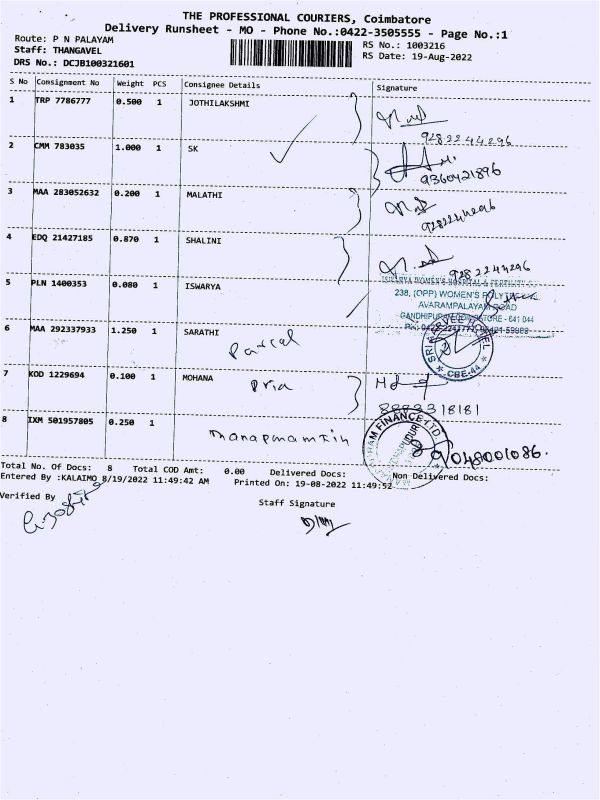 THE PROFESSIONAL COURIERS, Coimbatore
Delivery Runsheet - MO - Phone No.:0422-3505555 - Page No.:1
Route: P N PALAYAM
RS No.: 1003216
Staff: THANGAVEL
RS Date: 19-Aug-2022
DRS No.: DCJB100321601
S No Consignment No Weight PCS Consignee Details Signature
1 TRP 7786777 0.500 1 JOTHILAKSHMI
9282244296
2 CMM 783035 1.000 1 SK
9360421896
3 MAA 283052632 0.200 1 MALATHI
9282244296
4 EDQ 21427185 0.870 1 SHALINI
9282244296
5 PLN 1400353 0.080 1 ISWARYA
238, (OPP) WOMEN'S POLYTECHNIC
AVARAMPALAYAM ROAD
6 MAA 292337933 1.250 1 SARATHI
Parcel
CBE-44
7 KOD 1229694 0.100 1 MOHANA
Pria
8883318181
8 IXM 501957805 0.250 1
FINANCE LTD
9048001086.
Total No. Of Docs: 8 Total COD Amt: 0.00 Delivered Docs: Non Delivered Docs:
Entered By :KALAIMO 8/19/2022 11:49:42 AM Printed On: 19-08-2022 11:49:52
Verified By
Staff Signature